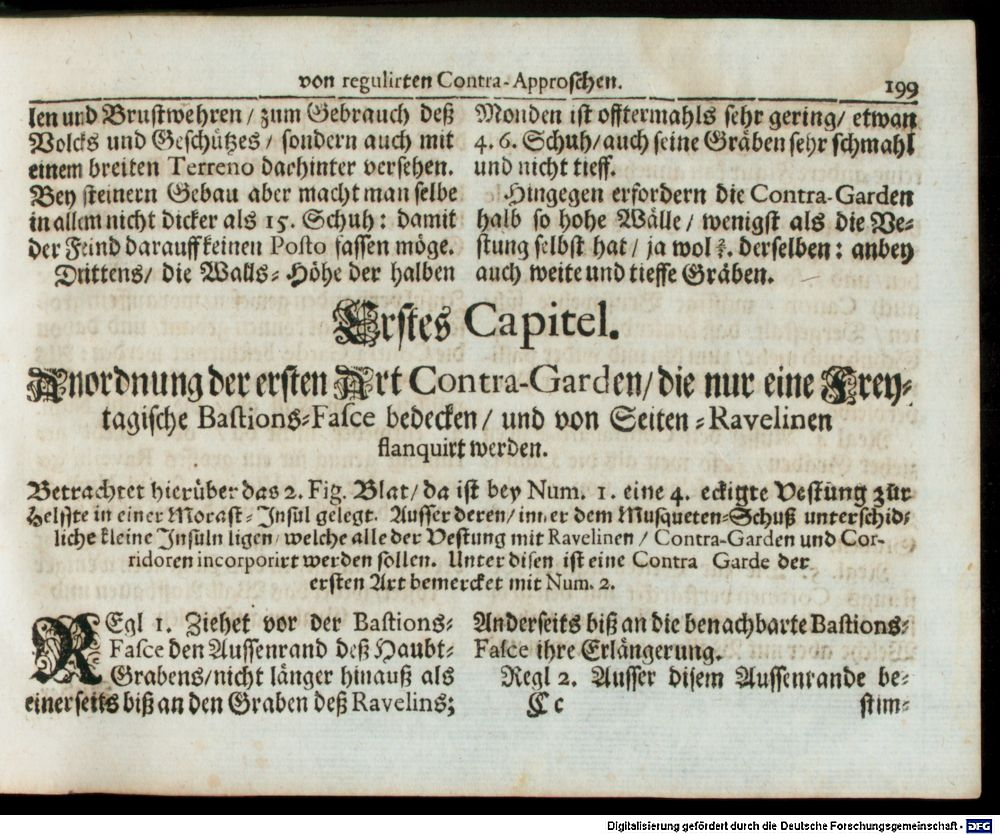 von regulirten Contra-Approschen. 199
len und Brustwehren / zum Gebrauch deß
Volcks und Geschützes / sondern auch mit
einem breiten Terreno dachinter versehen.
Bey steinern Gebau aber macht man selbe
in allem nicht dicker als 15. Schuh: damit
der Feind darauff keinen Posto fassen möge.
Drittens/ die Walls-Höhe der halben
Monden ist offtermahls sehr gering/ etwan
4. 6. Schuh/ auch seine Gräben sehr schmahl
und nicht tieff.
Hingegen erfordern die Contra-Garden
halb so hohe Wälle / wenigst als die Ve-
stung selbst hat / ja wol derselben: anbey
auch weite und tieffe Gräben.
Erstes Capitel.
Anordnung der ersten Art Contra-Garden/ die nur eine Frey-
tagische Bastions-Fasce bedecken / und von Seiten-Ravelinen
flanquirt werden.
Betrachtet hierüber das 2. Fig. Blat / da ist bey Num. 1. eine 4. eckigte Vestung zur
Helffte in einer Morast-Insul gelegt. Ausser deren / inner dem Musqueten-Schuß unterschid-
liche kleine Insuln ligen / welche alle der Vestung mit Ravelinen / Contra-Garden und Cor-
ridoren incorporirt werden sollen. Unter disen ist eine Contra Garde der
ersten Art bemercket mit Num. 2.
REgl 1. Ziehet vor der Bastions-
Fasce den Aussenrand deß Haubt-
Grabens/ nicht länger hinauß als
einerseits biß an den Graben deß Ravelins;
Anderseits biß an die benachbarte Bastions-
Fasce ihre Erlängerung.
Regl 2. Ausser disem Aussenrande be-
C c stim-
Digitalisierung gefördert durch die Deutsche Forschungsgemeinschaft - DFG